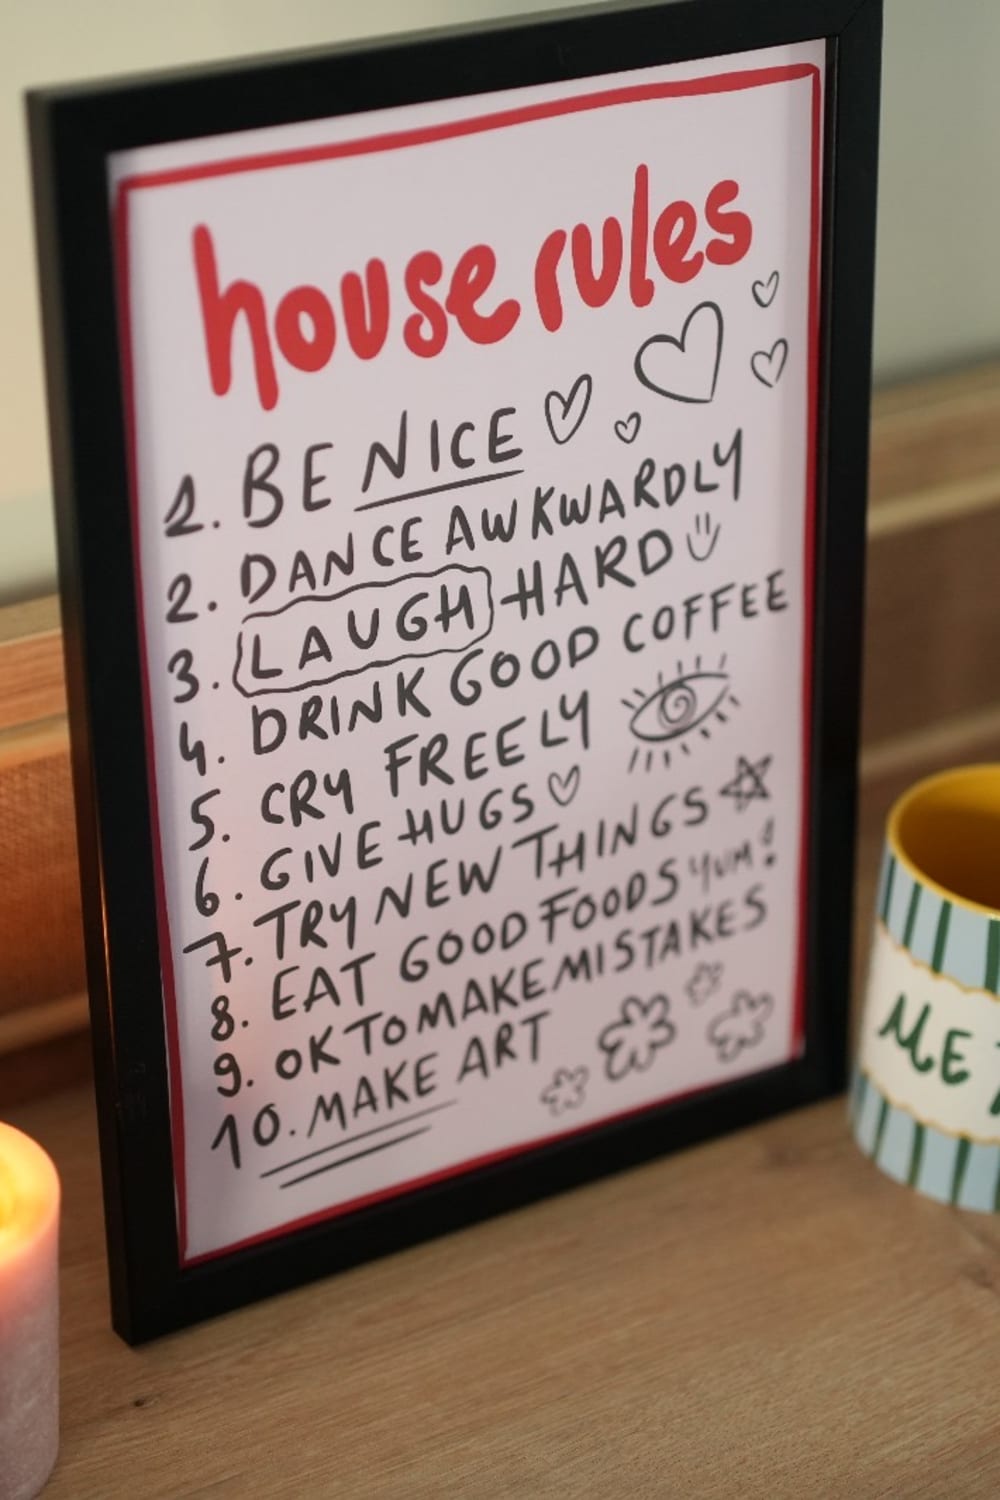 house rules
1. BE NICE
2. DANCE AWKWARDLY
3. LAUGH HARD
4. DRINK GOOD COFFEE
5. CRY FREELY
6. GIVE HUGS
7. TRY NEW THINGS
8. EAT GOOD FOODS YUM!
9. OK TO MAKE MISTAKES
10. MAKE ART
ME